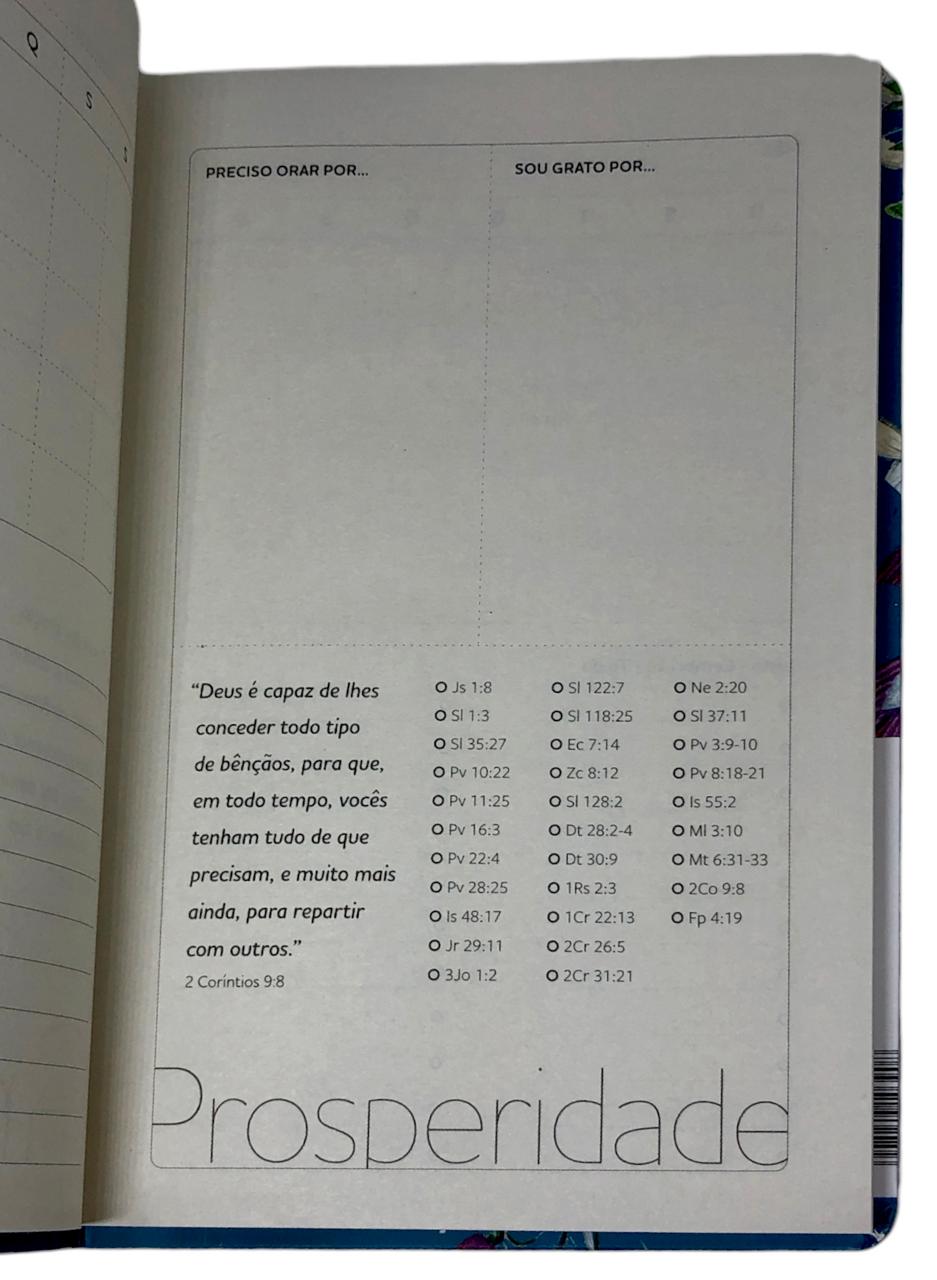 Q
S
S
PRECISO ORAR POR...
SOU GRATO POR...
“Deus é capaz de lhes
conceder todo tipo
de bênçãos, para que,
em todo tempo, vocês
tenham tudo de que
precisam, e muito mais
ainda, para repartir
com outros.”
2 Coríntios 9:8
Js 1:8
Sl 1:3
Sl 35:27
Pv 10:22
Pv 11:25
Pv 16:3
Pv 22:4
Pv 28:25
Is 48:17
Jr 29:11
3Jo 1:2
Sl 122:7
Sl 118:25
Ec 7:14
Zc 8:12
Sl 128:2
Dt 28:2-4
Dt 30:9
1Rs 2:3
1Cr 22:13
2Cr 26:5
2Cr 31:21
Ne 2:20
Sl 37:11
Pv 3:9-10
Pv 8:18-21
Is 55:2
Ml 3:10
Mt 6:31-33
2Co 9:8
Fp 4:19
Prosperidade